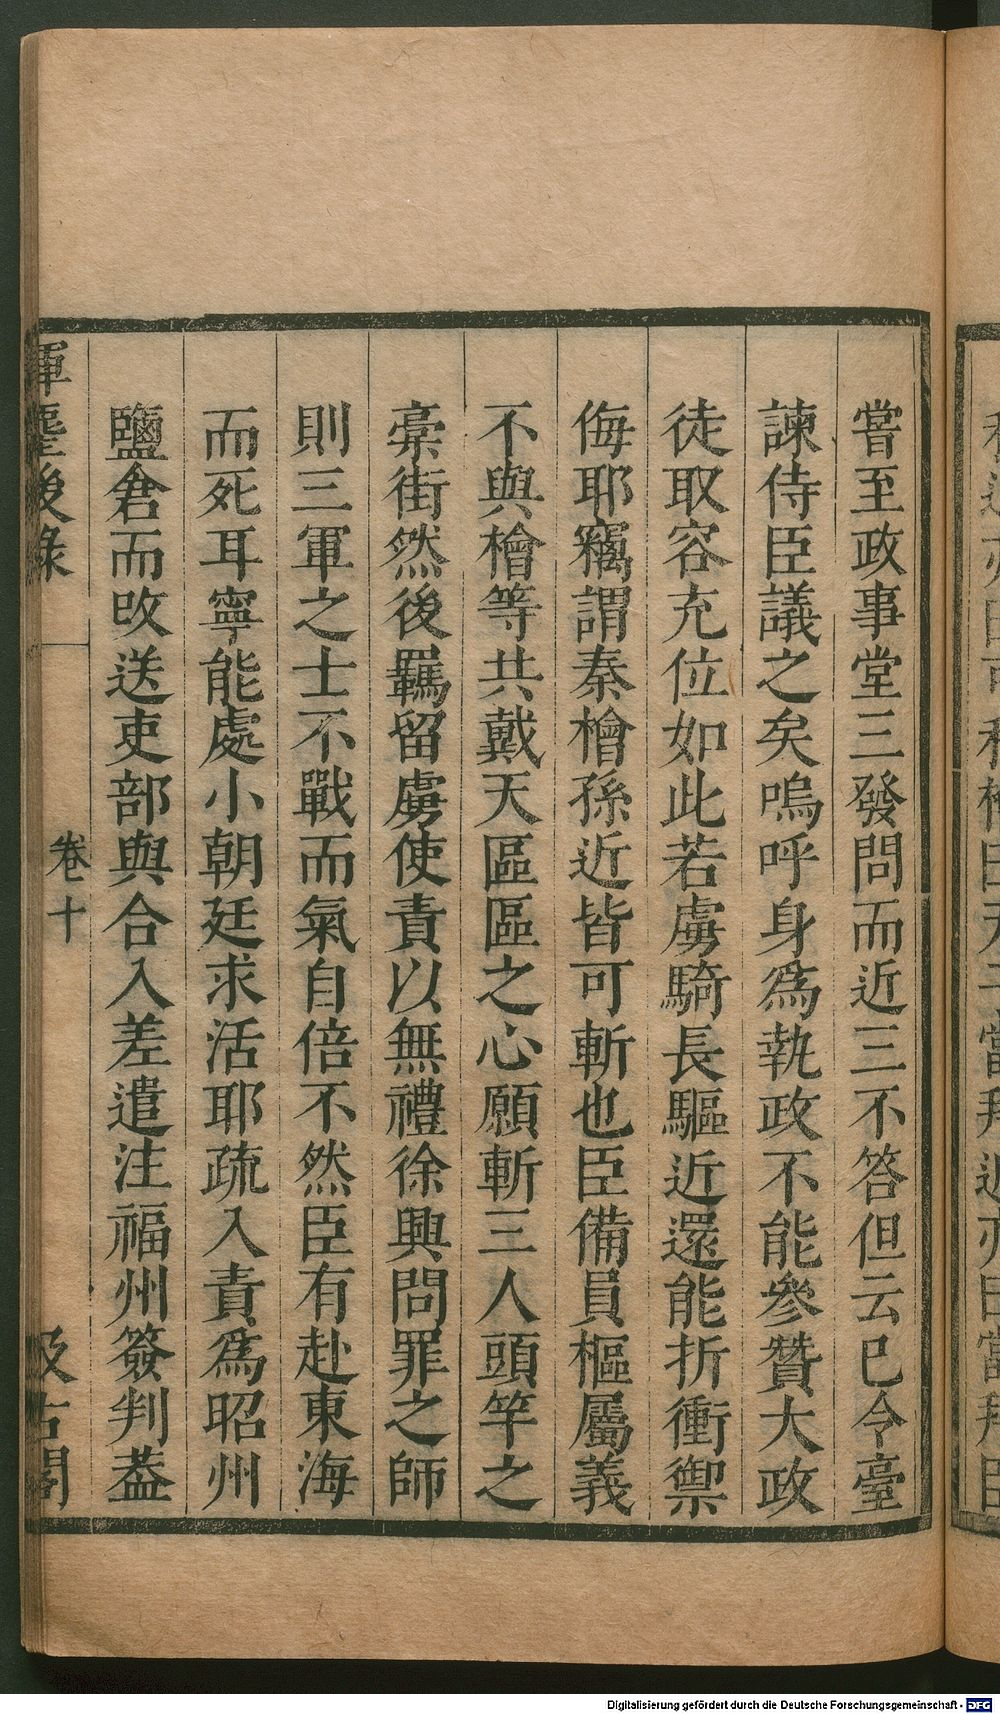 嘗至政事堂三發問而近三不答但云已令臺
諫侍臣議之矣嗚呼身爲執政不能參贊大政
徒取容充位如此若虜騎長驅近還能折衝禦
侮耶竊謂秦檜孫近皆可斬也臣備員樞屬義
不與檜等共戴天區區之心願斬三人頭竿之
藁街然後羈留虜使責以無禮徐興問罪之師
則三軍之士不戰而氣自倍不然臣有赴東海
而死耳寧能處小朝廷求活耶疏入責爲昭州
鹽倉而改送吏部與合入差遣注福州簽判葢
揮麈後錄
卷十
汲古閣
Digitalisierung gefördert durch die Deutsche Forschungsgemeinschaft - DFG